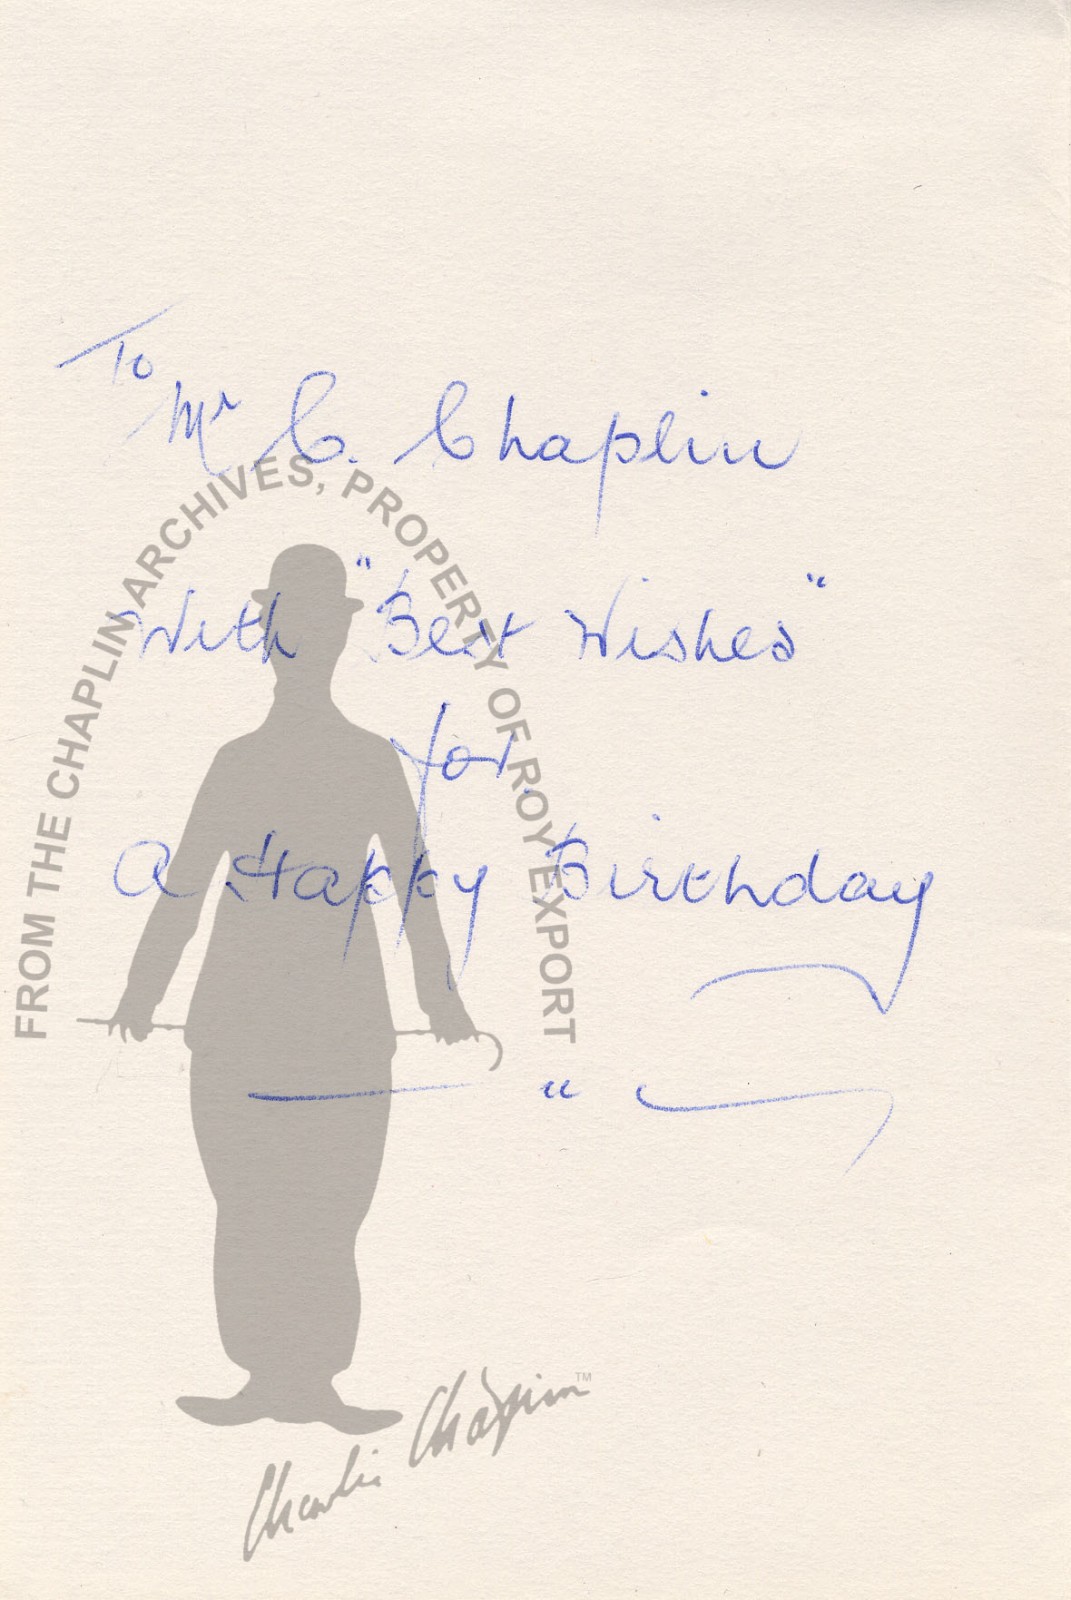 To
Mr C. Chaplin
With "Best Wishes"
for
A Happy Birthday
"
FROM THE CHAPLIN ARCHIVES, PROPERTY OF ROY EXPORT
Charlie Chaplin™